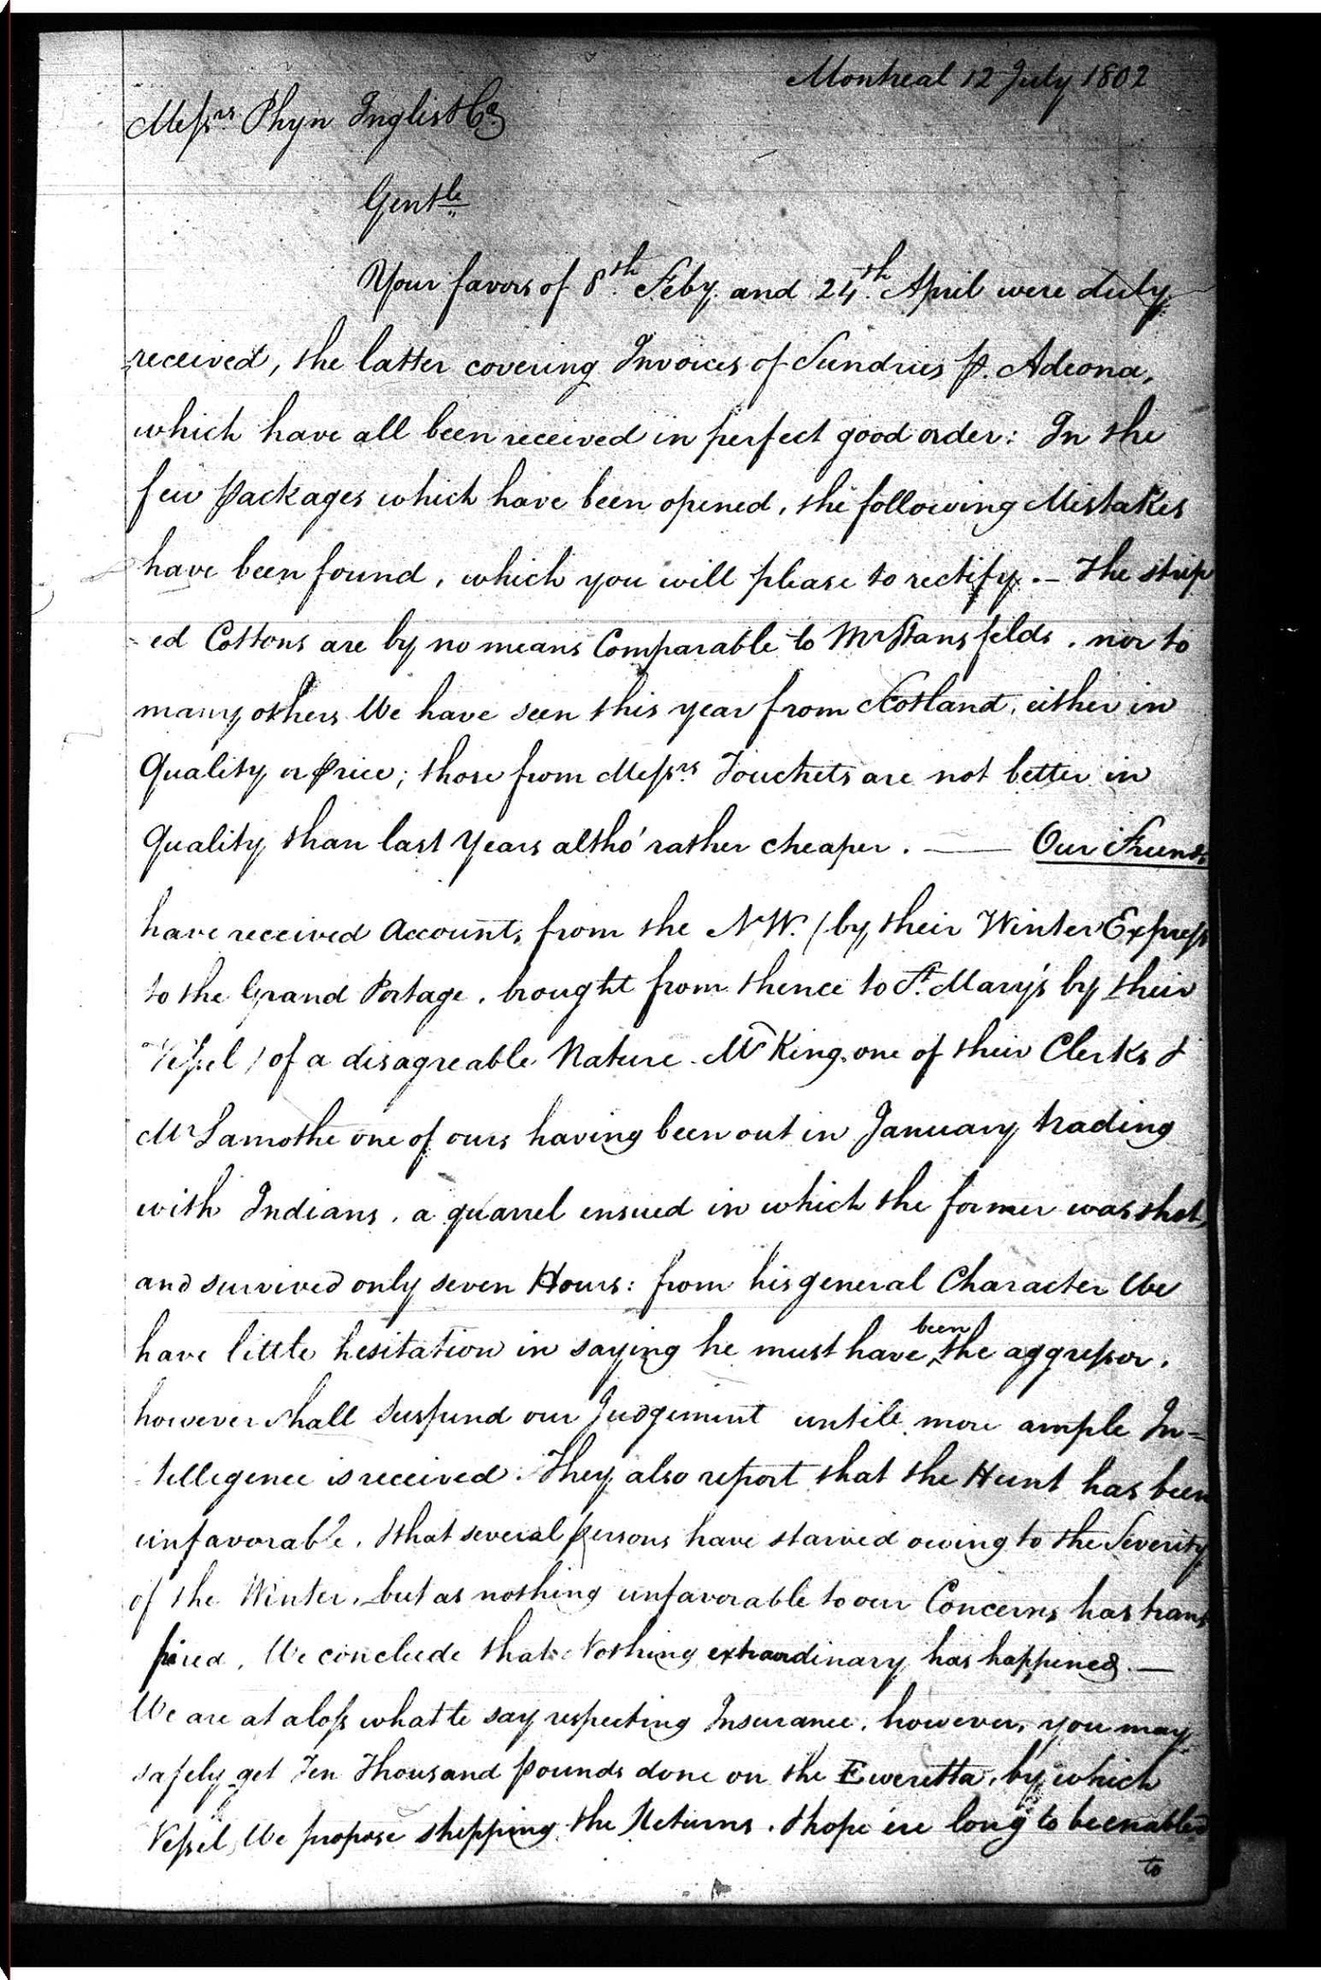 Montreal 12 July 1802
Messrs. Phyn Inglis & Co
Gentle
Your favors of 8th. Feby. and 24th. April were duly
received, the latter covering Invoices of Sundries p. Adeona,
which have all been received in perfect good order: In the
few packages which have been opened, the following Mistakes
have been found, which you will please to rectify. – The strip
ed Cottons are by no means Comparable to Mr Stansfelds, nor to
many others We have seen this year from Scotland, either in
Quality or Price; those from Messrs Touchets are not better in
Quality than last Years altho' rather cheaper. — Our Friends
have received Accounts, from the NW. (by their Winter Express
to the Grand Portage, brought from thence to St. Mary's by their
Vessel) of a disagreable Nature. Mr King, one of their Clerks &
Mr Lamothe one of ours having been out in January trading
with Indians, a quarrel ensued in which the former was shot,
and survived only seven Hours: from his general Character We
have little hesitation in saying he must have been the aggressor,
however shall suspend our Judgement untill more ample In=
telligence is received. They also report that the Hunt has been
unfavorable, & that several persons have starved owing to the Severity
of the Winter, but as nothing unfavorable to our Concerns has trans
pired, We conclude that Nothing extraordinary has happened. —
We are at a loss what to say respecting Insurance, however, you may
safely get Ten Thousand pounds done on the Eweretta, by which
Vessel We propose shipping the Returns, & hope ere long to be enabled
to